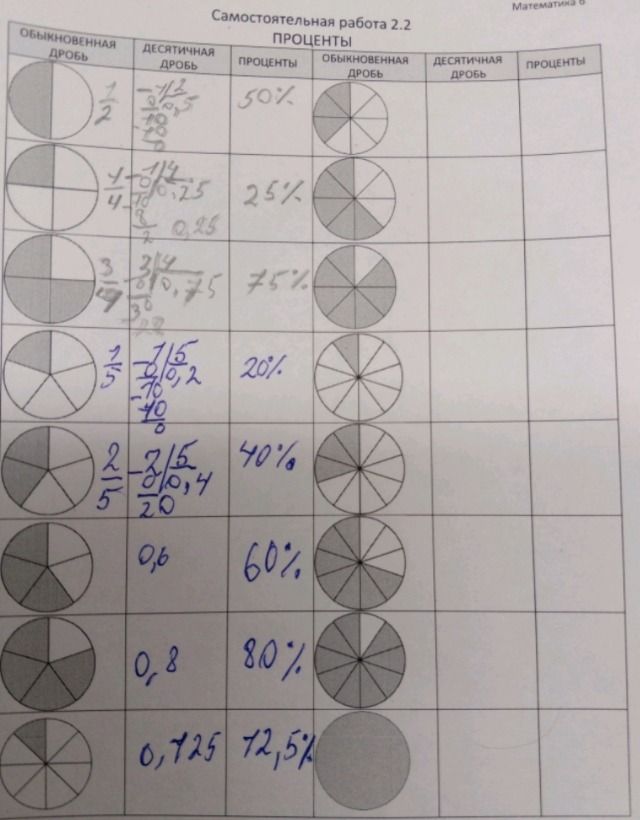 Математика 6
Самостоятельная работа 2.2
ПРОЦЕНТЫ
ОБЫКНОВЕННАЯ ДРОБЬ ДЕСЯТИЧНАЯ ДРОБЬ ПРОЦЕНТЫ ОБЫКНОВЕННАЯ ДРОБЬ ДЕСЯТИЧНАЯ ДРОБЬ ПРОЦЕНТЫ
1/2
-1|2
0|0,5
10
10
0
50%
1/4
-1|4
0|0,25
-10
8
2 0,25
25%
3/4
-3|4
0|0,75
30
28
75%
1/5
-1|5
0|0,2
-10
10
0
20%
2/5
-2|5
0|0,4
20
40%
0,6 60%
0,8 80%
0,125 12,5%